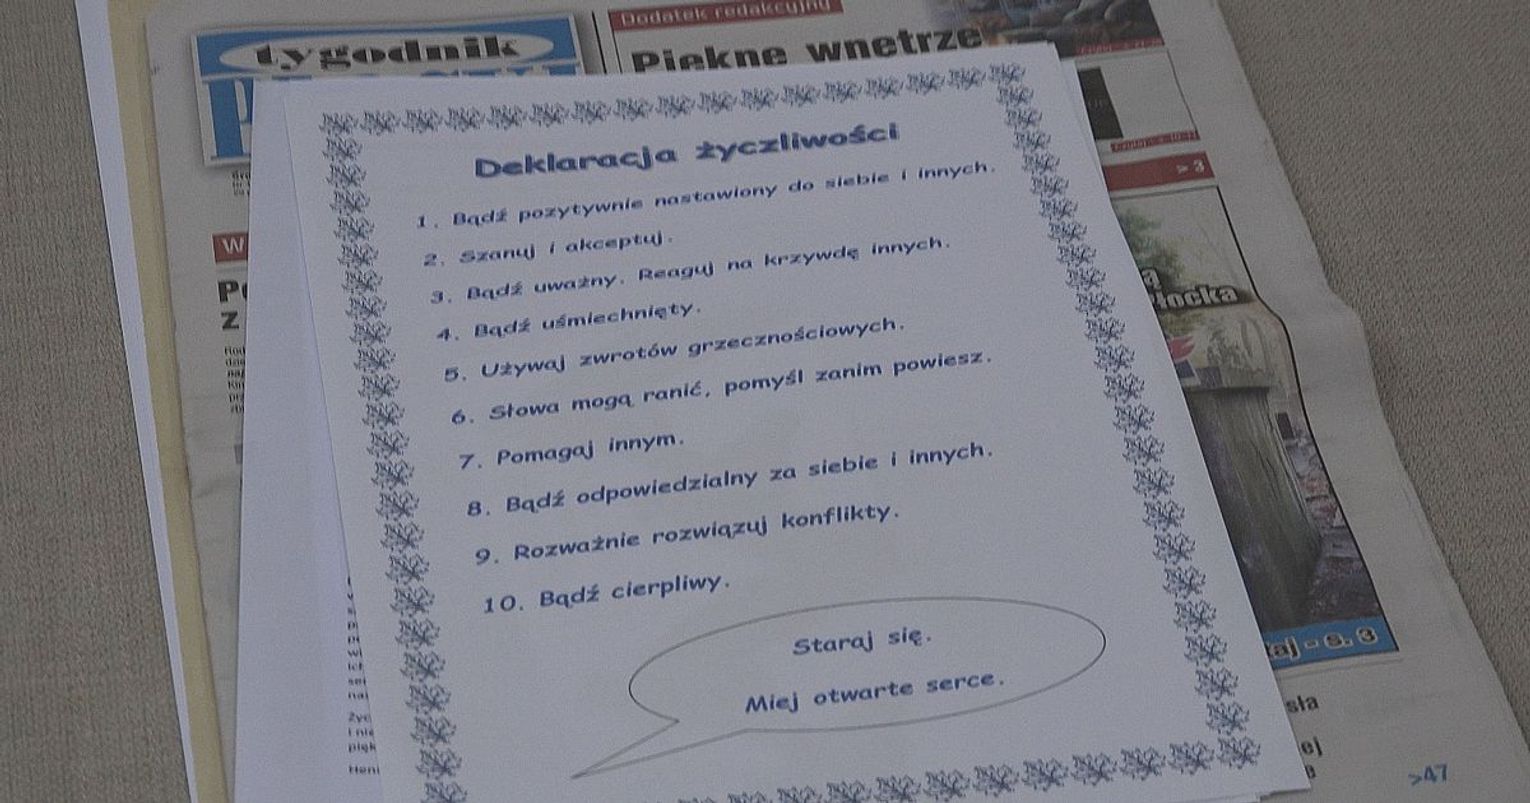 tygodnik
Dodatek redakcyjny
Piękne wnętrze
Deklaracja życzliwości
1. Bądź pozytywnie nastawiony do siebie i innych.
2. Szanuj i akceptuj.
3. Bądź uważny. Reaguj na krzywdę innych.
4. Bądź uśmiechnięty.
5. Używaj zwrotów grzecznościowych.
6. Słowa mogą ranić, pomyśl zanim powiesz.
7. Pomagaj innym.
8. Bądź odpowiedzialny za siebie i innych.
9. Rozważnie rozwiązuj konflikty.
10. Bądź cierpliwy.
Staraj się.
Miej otwarte serce.
> 3
W
Z
s. 3
>47